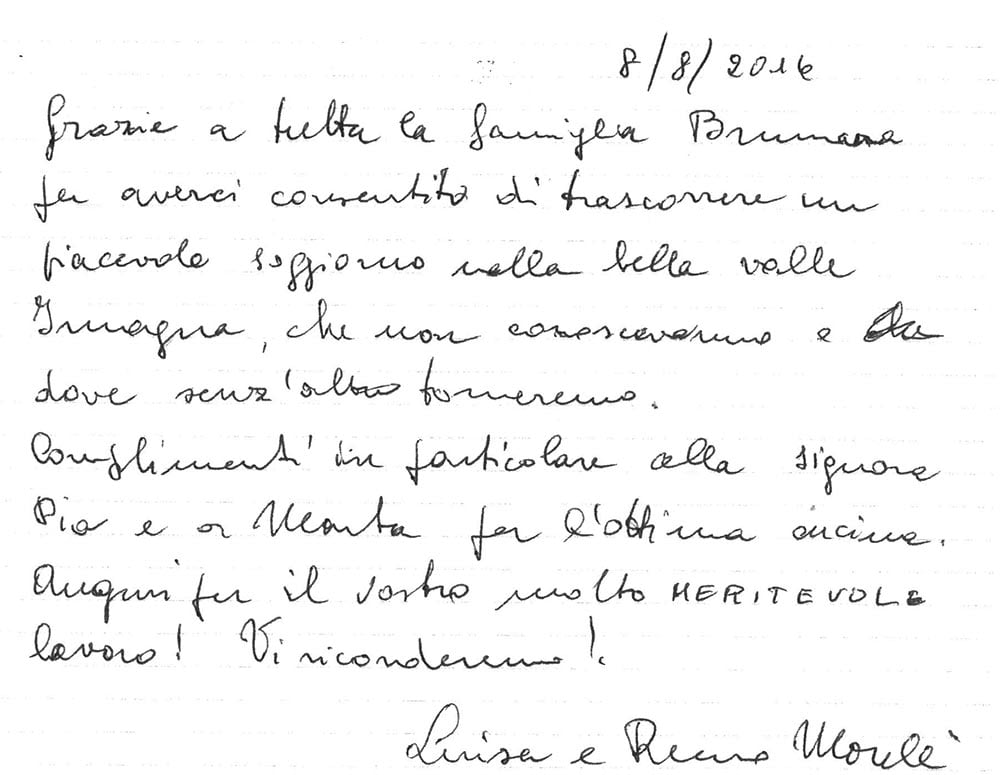 8/8/2016
Grazie a tutta la famiglia Brumana
per averci consentito di trascorrere un
piacevole soggiorno nella bella valle
Imagna, che non conoscevamo e
dove senz'altro torneremo.
Complimenti in particolare alla signora
Pia e a Marta per l'ottima cucina.
Auguri per il vostro molto MERITEVOLE
lavoro! Vi ricorderemo!
Luisa e Remo